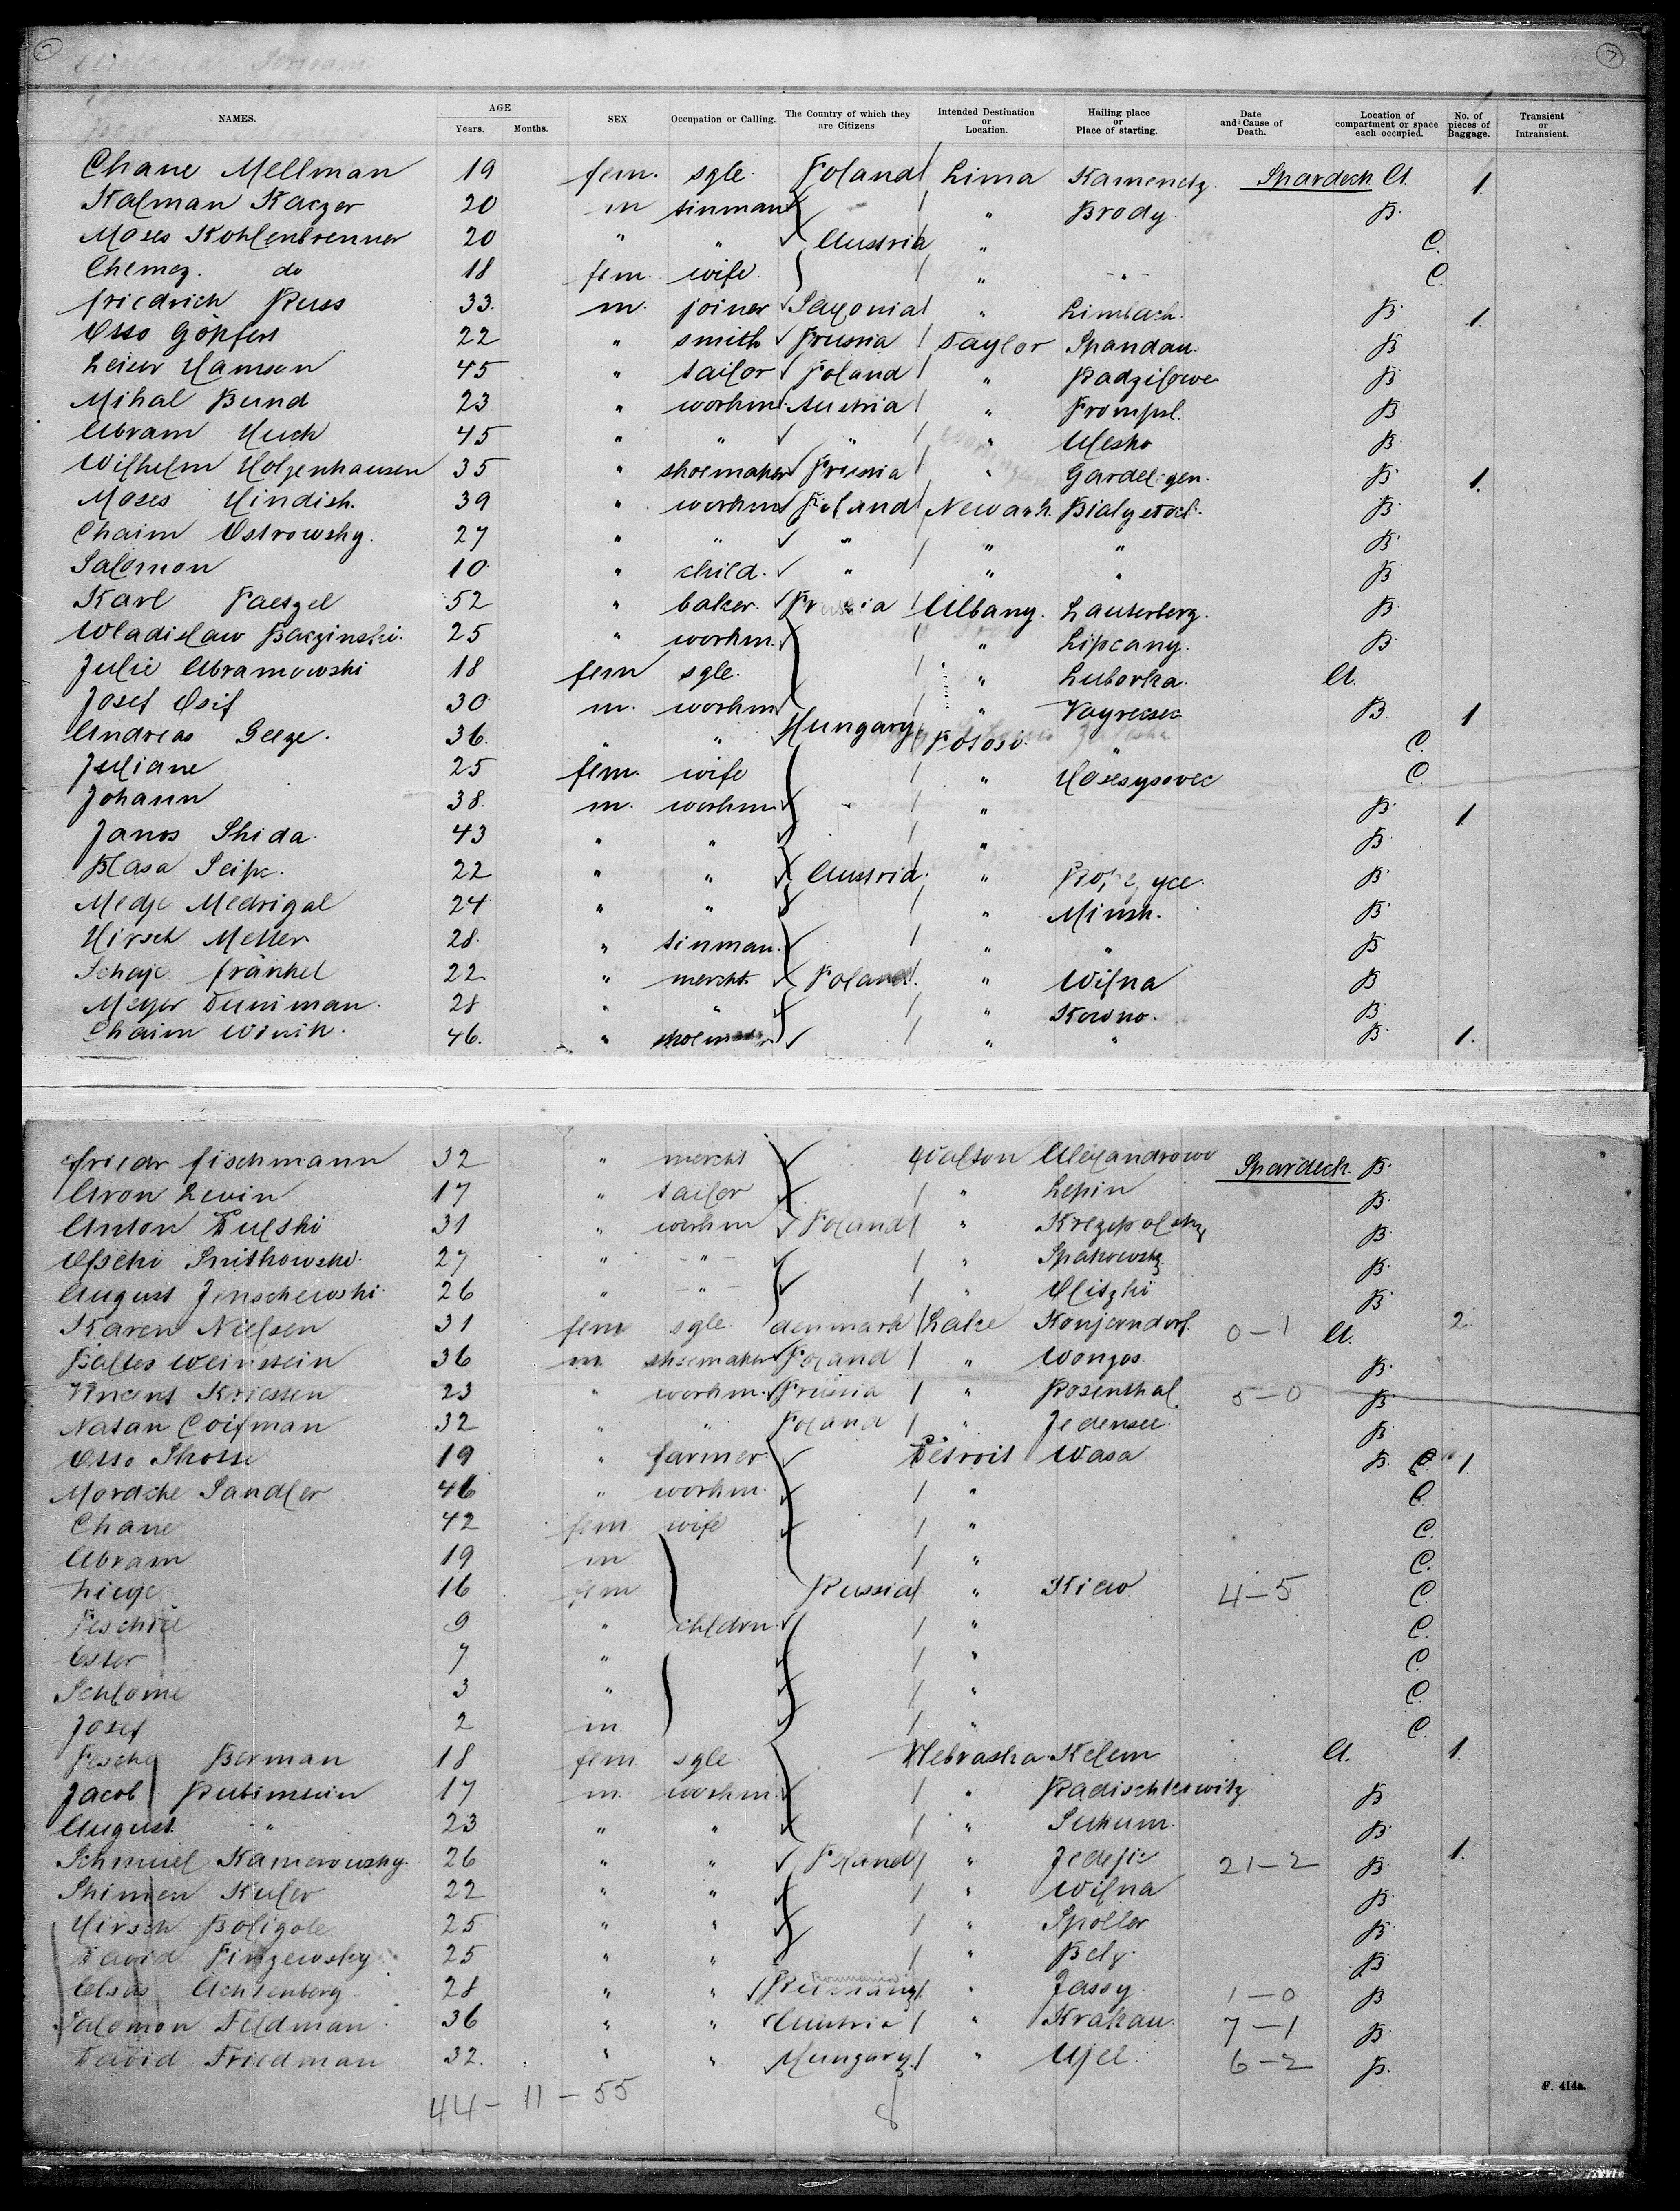 7 7
NAMES. AGE Years. Months. SEX Occupation or Calling. The Country of which they are Citizens Intended Destination or Location. Hailing place or Place of starting. Date and Cause of Death. Location of compartment or space each occupied. No. of pieces of Baggage. Transient or Intransient.
Chane Mellman 19 fem. sgle. Poland Lima Kamendz. Spardeck A. 1.
Kalman Kaczer 20 m tinman " Brody. B.
Moses Kohlenbrenner 20 " " Austria " C.
Chemez. do 18 fem. wife. " - " - C.
Friedrich Russ 33. m. joiner Saxonia " Limbach. B. 1.
Otto Göpfert 22 " smith Prussia Taylor Spandau. B.
Leiser Hamson 45 " tailor Poland " Radzilowe B.
Mihal Bund 23 " workm. Austria " B.
Abram Huch 45 " " " " Olesko B.
Wilhelm Holzenhausen 35 " shoemaker Prussia " Gardelegen. B. 1.
Moses Hindish. 39 " workm Poland Newark. Bialystock. B.
Chaim Ostrowsky. 27 " " " " " B.
Salomon 10 " child. " " " B.
Karl Paetzel 52 " baker. Prussia Albany. Lauterberg. B.
Wladislaw Baczinski. 25 " workm. " Lipcany. B.
Julie Abramowski 18 fem sgle. " Luborka. A.
Josef Osif 30 m. workm " B. 1
Andreas Geeze. 36 " " Hungary Potosi. " C.
Juliane 25 fem. wife " C.
Johann 38. m. workm. " B. 1
Janos Shida. 43 " " " B.
Blasa Seipc. 22 " " Austria. " B.
Medje Medrigal 24 " " " Minsk. B.
Hirsch Meller 28. " tinman. " " B.
Schaje Fränkel 22 " mercht. Poland. " Wilna B
Meyer Duniman. 28 " " " Kowno. B.
Chaim Winik. 46. " shoemaker " " B. 1.
Friedr Fischmann 32 " mercht Walton Alexandrowo Spardeck. B.
Aron Levin 17 " tailor " Lepin B.
Anton Dulski 31 " workm Poland " B.
27 " - " - " B.
August Jenschewski. 26 " - " - " B.
Karen Nielsen 31 fem sgle. denmark Lake Konjerndorf. 0-1 A. 2.
Baltes Weinstein 36 m shoemaker Poland " Wongos. B.
Vincent Kriessen 23 " workm. Prussia " Rosenthal. 5-0 B.
Natan Coifman 32 " " Poland " Jedensee. B.
Otto Shosse 19 " farmer. Detroit Wasa B. C. 1.
Mordche Sandler 46 " workm. " C.
Chane 42 fem wife " C.
Abram 19 m " C.
Liege 16 fem Russia " Kiew. 4-5 C.
Peschie 9 " chldrn " C.
Ester 7 " " C.
Schlome 3 " " C.
Josef 2 m. " C.
Pesche Berman 18 fem sgle. Nebraska Kelem A. 1.
Jacob Rubinstein 17 m. workm. " Radischkowitz B.
August " 23 " " " Suhum. B.
Schmuel Kamerowsky. 26 " " Poland " 21-2 B. 1.
Shimen Kuler 22 " " " Wilna B.
Hirsch Boligole 25 " " " Spoller B.
David Pinzewsky 25 " " " Belz. B.
Elsas Achtenberg 28 " " Roumania " Jassy. 1-0 B
Salomon Feldman. 36 " " Austria " Krakau. 7-1 B.
David Friedman 32. " " Hungary. " Ujel. 6-2 B.
44 - 11 - 55 8
F. 414a.